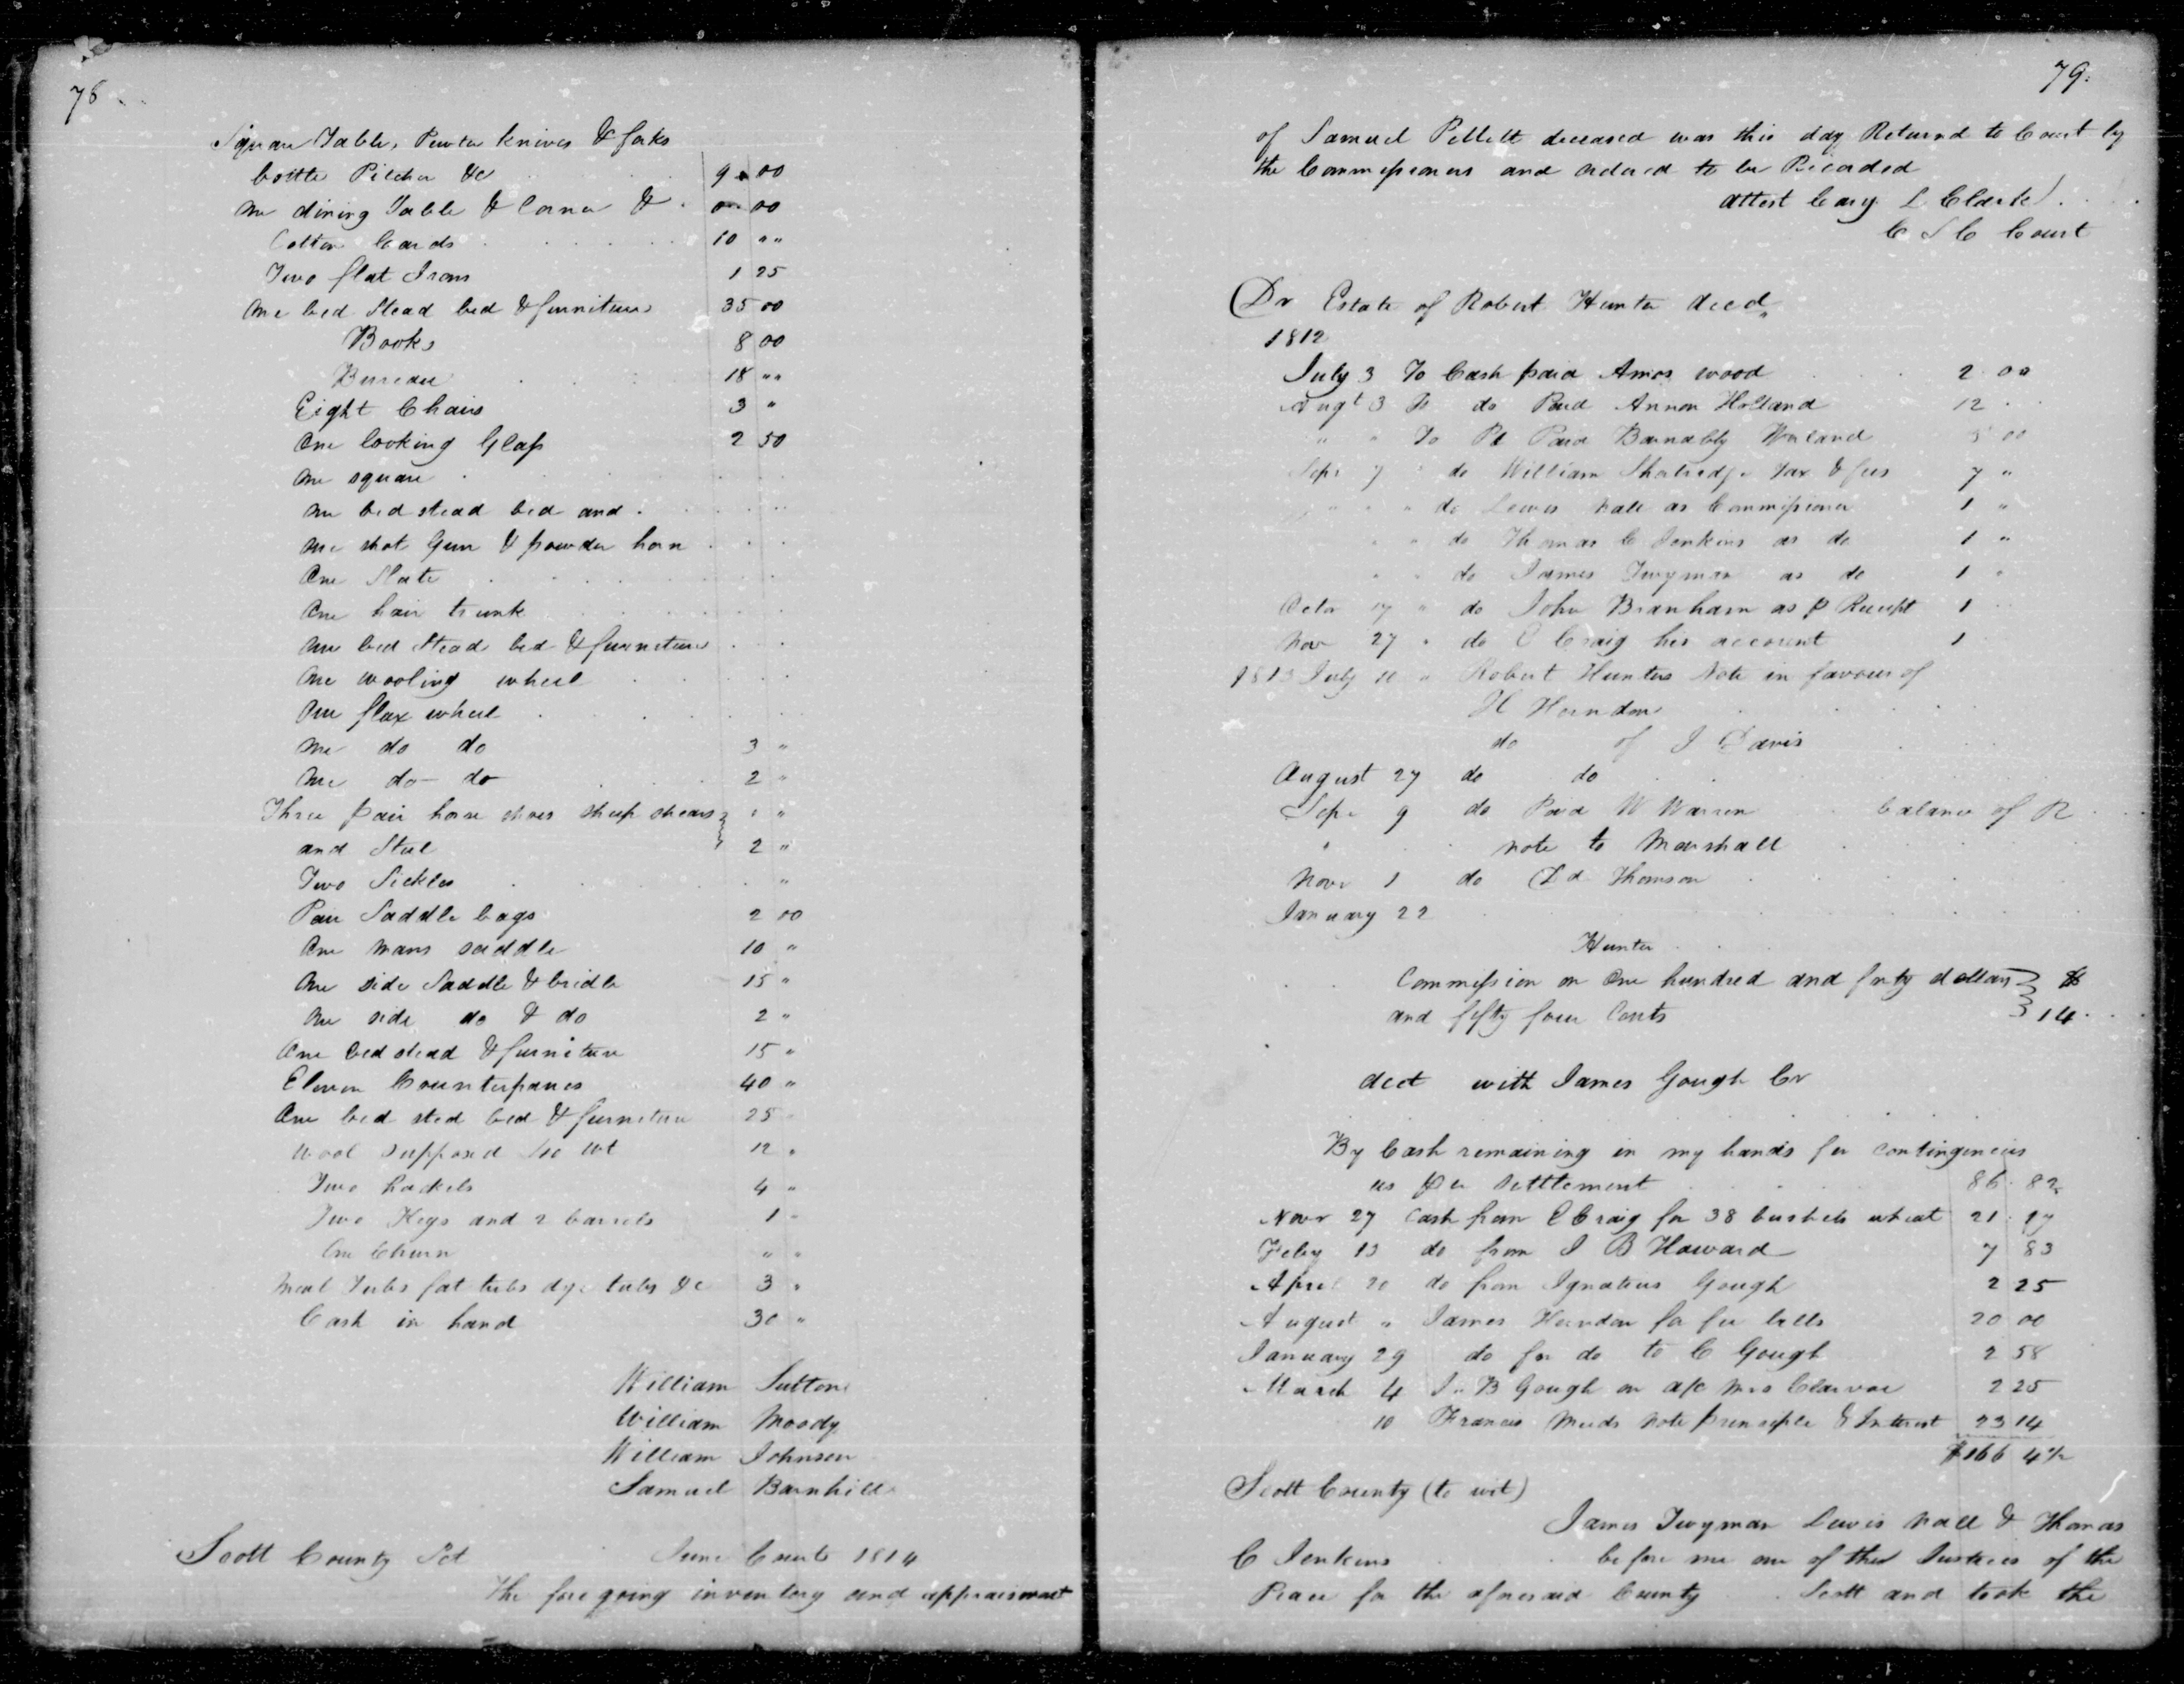 78
Square Table, Pewter knives & forks
bottle Pitcher &c 9 00
One dining Table & Corner & 00
Cotton Cards 10 " "
Two flat Irons 1 25
One bed Stead bed & furniture 35 00
Books 8 00
Bureau 18 " "
Eight Chairs 3 "
One looking Glass 2 50
One square
One bed stead bed and
One shot Gun & powder horn
One Slate
One hair trunk
One bed Stead bed & furniture
One wooling wheel
One flax wheel
One do do 3 "
One do do 2 "
Three pair horse shoes sheep shears "
and Steel 2 "
Two Sickles "
Pair Saddle bags 2 00
One mans saddle 10 "
One side Saddle & bridle 15 "
One side do & do 2 "
One bed stead & furniture 15 "
Eleven Counterpanes 40 "
One bed sted bed & furniture 25
Wool supposed wt 12 "
Two hackels 4 "
Two Kegs and 2 barrels 1 "
One Churn " "
Meal Tubs fat tubs dye tubs &c 3 "
Cash in hand 30 "
William Sutton
William Moody
William Johnson
Samuel Barnhill
Scott County Sct June Court 1814
The foregoing inventory and appraisment
79.
of Samuel Pellett deceased was this day Returnd to Court by
the Commissioners and ordered to be Recorded
attest Cary L Clarke
C S C Court
Dr Estate of Robert Hunter decd
1812
July 3 To Cash paid Amos wood 2 00
Augt 3 To do Paid Annon Holland 12
" " To Pd Paid Barnabby Worland 00
Sepr 7 do William Shatredge Tax & fees 7 "
" " " do Lewis Nall as Commissioner 1 "
" " do Thomas C Jenkins as do 1 "
" " do James Twyman as do 1 "
Octor 17 " do John Branham as p Receipt 1
Nov 27 " do C Craig his account 1
1813 July 10 " Robert Hunters Note in favour of
H Herndon
do of J Davis
August 27 do do
Sepr 9 do Paid W Warren balance of R
" note to Marshall
Novr 1 do Dd Thomson
January 22
Hunter
Commission on One hundred and forty dollars
and fifty four Cents 14
acct with James Gough Cr
By Cash remaining in my hands for contingencies
as per settlement 86 82
Novr 27 Cash from C Craig for 38 bushels wheat 21 17
Feby 13 do from J B Howard 7 83
April 20 do from Ignatius Gough 2 25
August " James Herndon for fee bills 20 00
January 29 do for do to C Gough 2 58
March 4 J. B Gough on a/c Mrs 2 25
10 Francis Meeds note prinsiple & Interest 23 14
$166 4½
Scott County (to wit)
James Twyman Lewis Nall & Thomas
C Jenkins before me one of the Justices of the
Peace for the aforesaid County Scott and took the